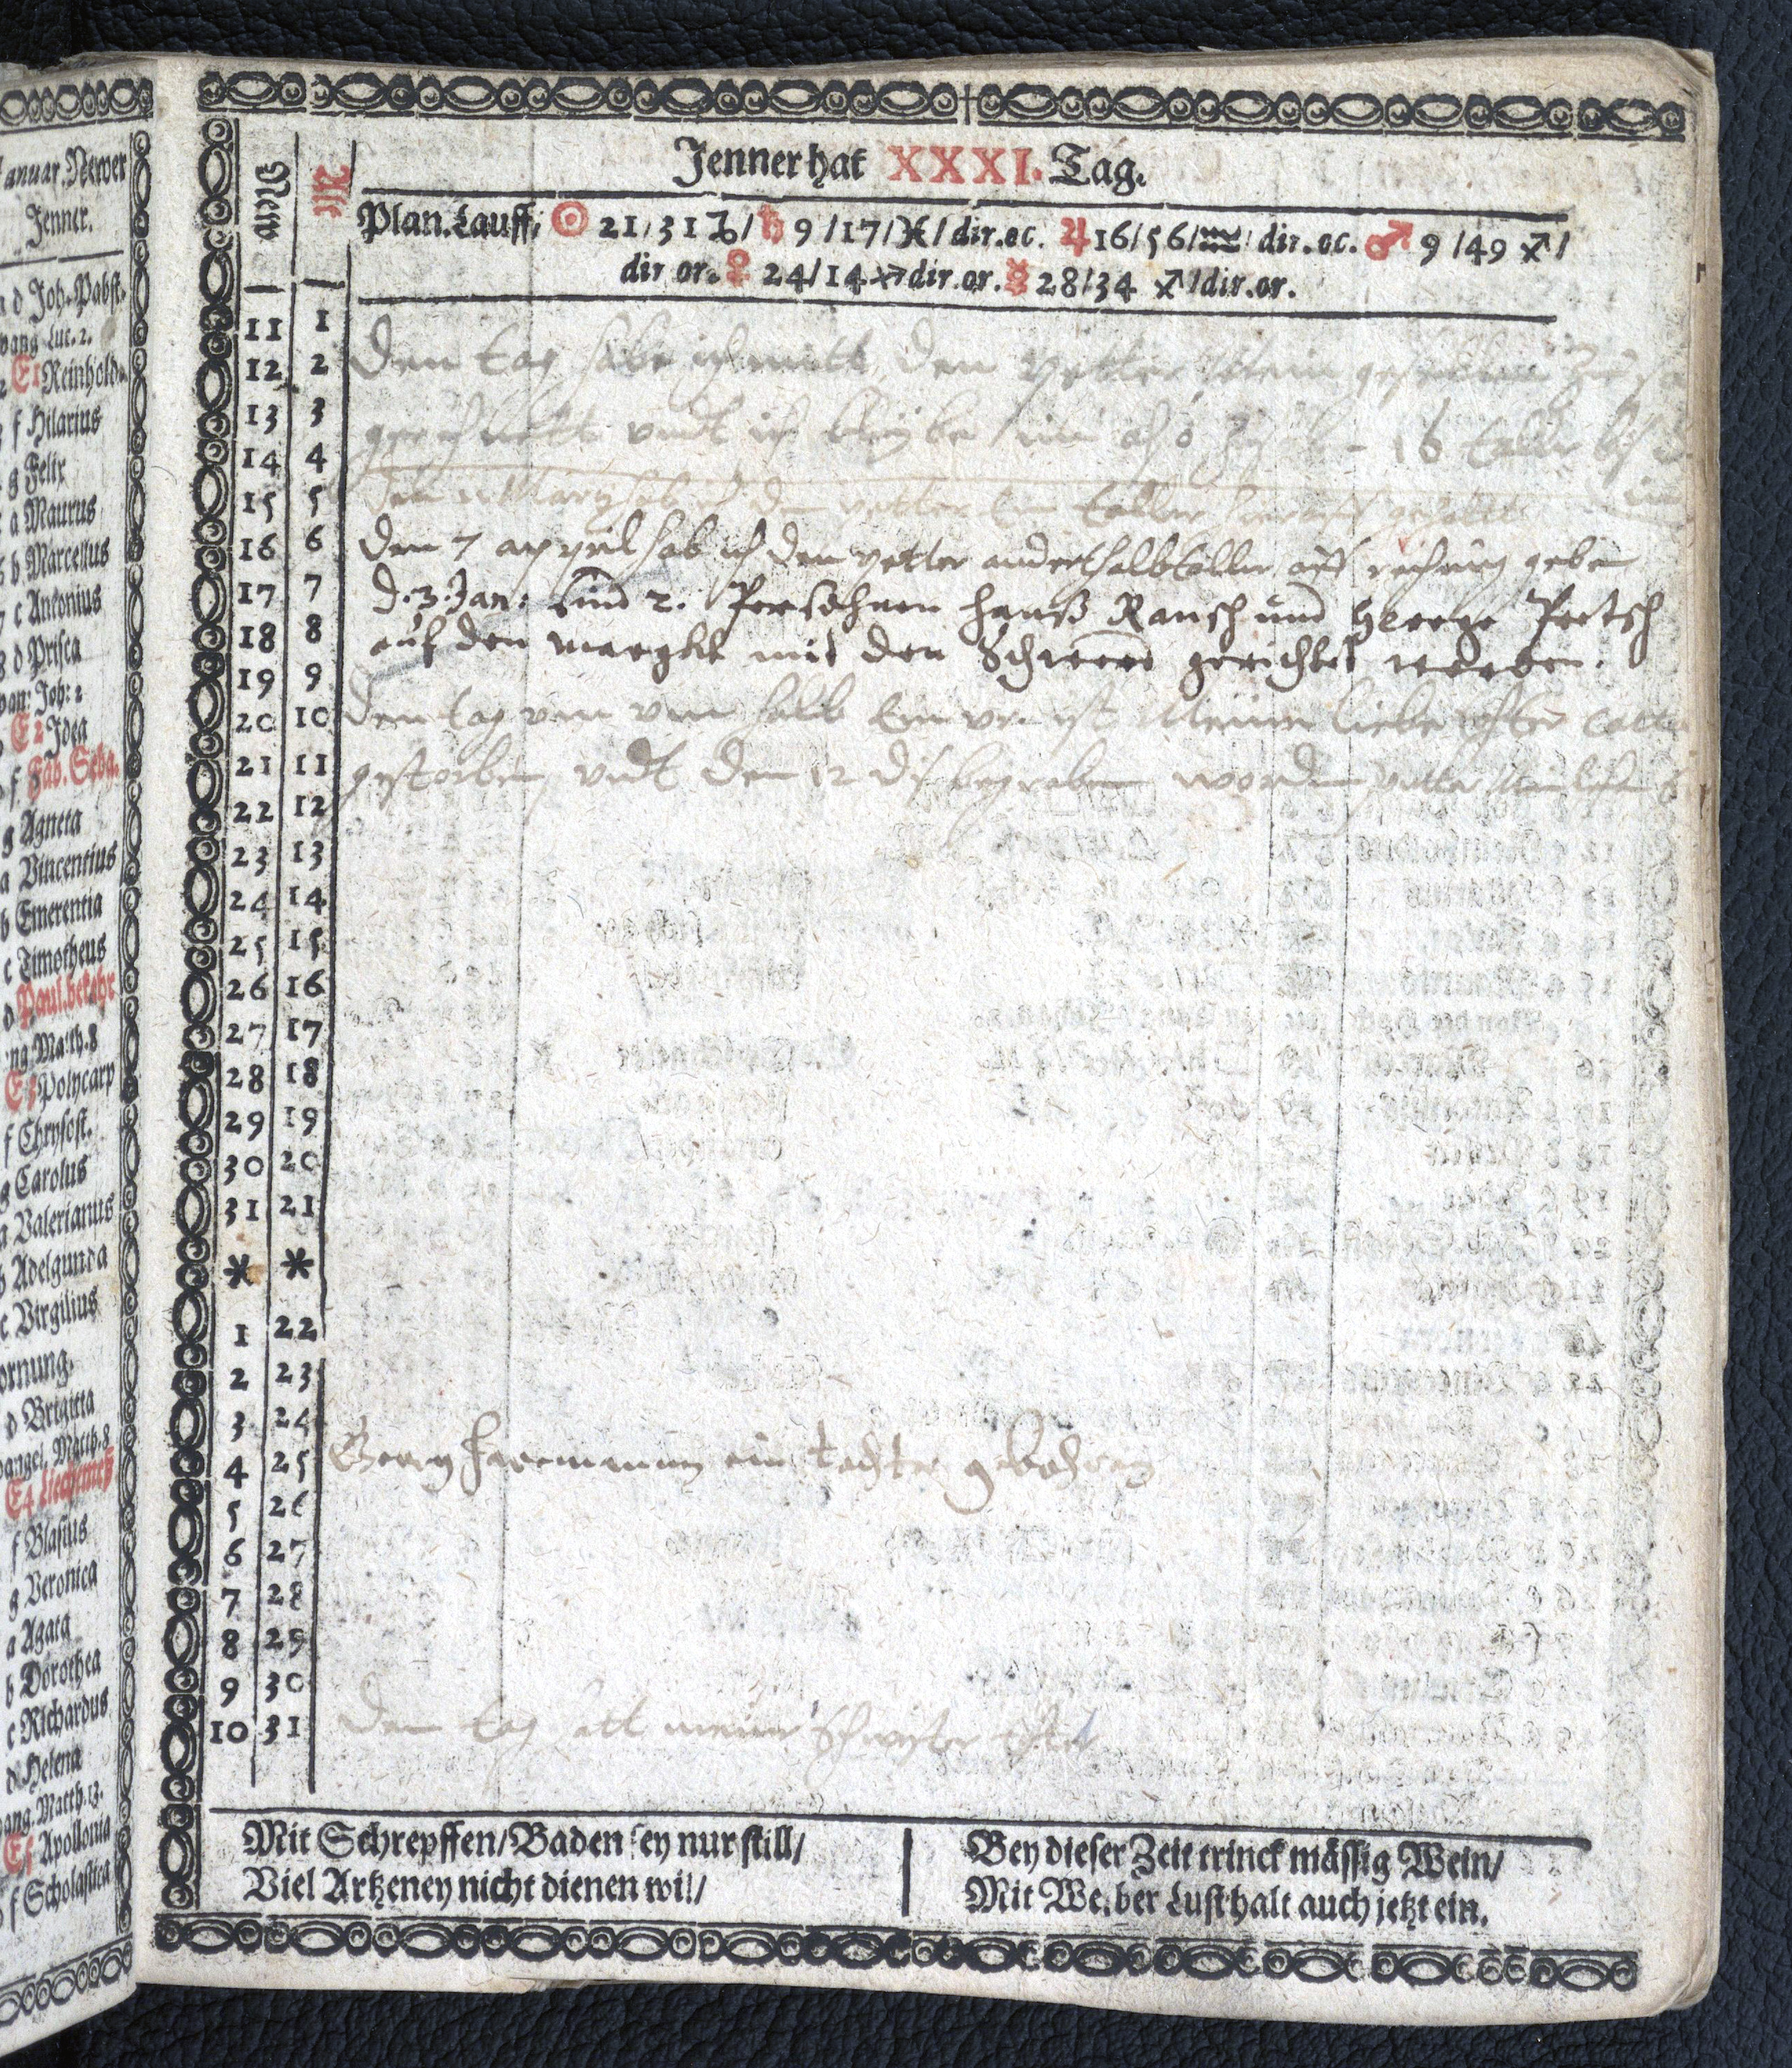 anuar. Newer
Jenner.
d Joh. Pabst.
vang Luc. 2.
E1 Reinhold.
f Hilarius
g Felix
a Maurus
b Marcellus
c Antonius
d Prisca
Joh: 2
E2
f Fab. Seba.
g Agneta
a Vincentius
b Emerentia
c Timotheus
d Paul. bekehr
ng. Matth. 8
E3 Polycarp
f Chrysost.
g Carolus
a Valerianus
b Adelgunda
c Virgilius
ornung.
d Brigitta
angel. Matth. 8
E4 Liechtmeß
f Blasius
g Veronica
a Agata
b Dorothea
c Richardus
d Helena
ang. Matth. 13.
E5 Apollonia
f Scholastica
Jenner hat XXXI. Tag.
New Alt
Plan. Lauff, ☉ 21/31 ♑/ ♄ 9/17/♓/ dir. oc. ♃ 16/56/♒/ dir. oc. ♂ 9/49 ♐/
dir or. ♀ 24/14 ♐ dir. or. ☿ 28/34 ♐/dir. or.
11 1
12 2 Den tag habe ich mitt den vetter
13 3
14 4 vndt ich 16 taller
15 5 den vetter Ein taller
16 6 Den 7 appril hab ich den vetter anderthalb taller auff rechnung geben
17 7 d. 3. Jan: sind 2. Persohnen Hanß Rausch und George Pretsch
18 8 auf den marght mit den Schwerd gerichtet worden.
19 9
20 10 Den tag vm halb Ein vr ist Meine liebe
21 11 gestorben vndt den 12 begraben worden
22 12
23 13
24 14
25 15
26 16
27 17
28 18
29 19
30 20
31 21
* *
1 22
2 23
3 24
4 25 Georg ein tochter gebohren
5 26
6 27
7 28
8 29
9 30
10 31 Den tag hatt meine Schwester
Mit Schrepffen/Baden sey nur still/
Viel Artzeney nicht dienen wil/
Bey dieser Zeit trinck mässig Wein/
Mit Weiber Lust halt auch jetzt ein.